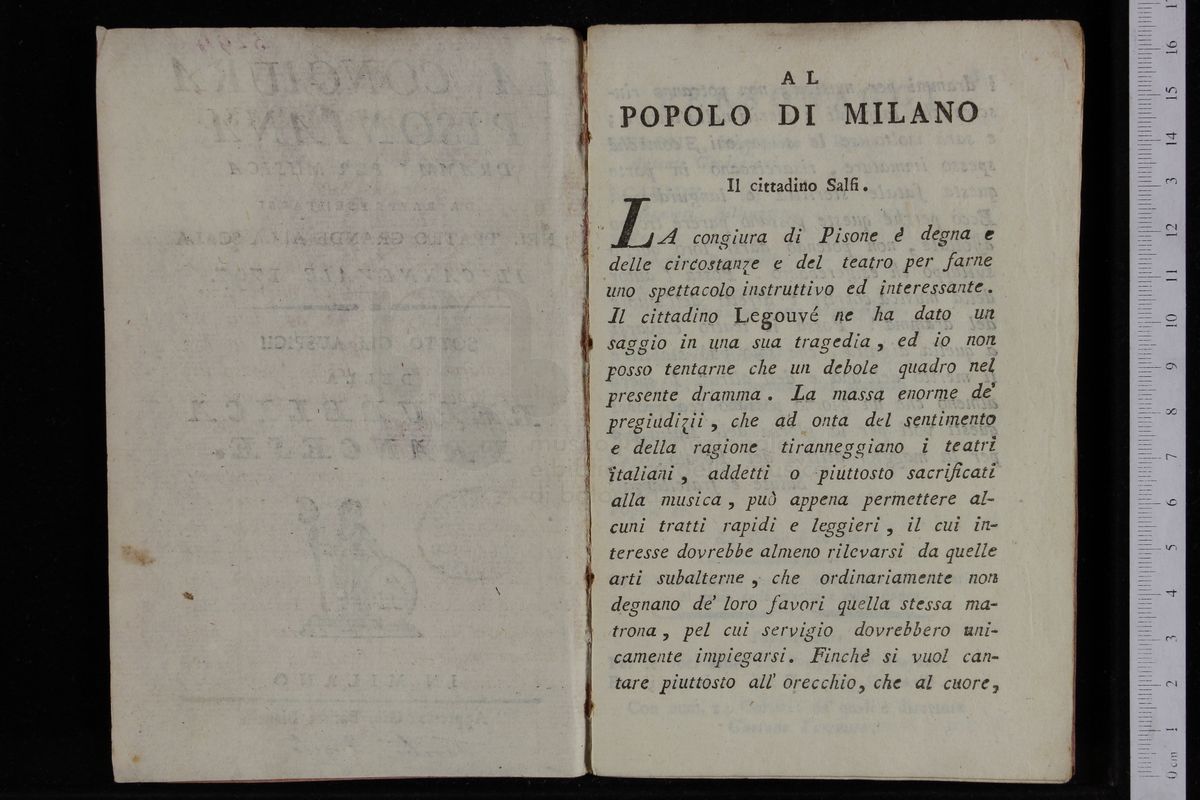 AL
POPOLO DI MILANO
Il cittadino Salfi.
LA congiura di Pisone è degna e
delle circostanze e del teatro per farne
uno spettacolo instruttivo ed interessante.
Il cittadino Legouvé ne ha dato un
saggio in una sua tragedia, ed io non
posso tentarne che un debole quadro nel
presente dramma. La massa enorme de'
pregiudizii, che ad onta del sentimento
e della ragione tiranneggiano i teatri
italiani, addetti o piuttosto sacrificati
alla musica, può appena permettere al-
cuni tratti rapidi e leggieri, il cui in-
teresse dovrebbe almeno rilevarsi da quelle
arti subalterne, che ordinariamente non
degnano de' loro favori quella stessa ma-
trona, pel cui servigio dovrebbero uni-
camente impiegarsi. Finchè si vuol can-
tare piuttosto all' orecchio, che al cuore,
0 cm 1 2 3 4 5 6 7 8 9 10 11 12 13 14 15 16 17